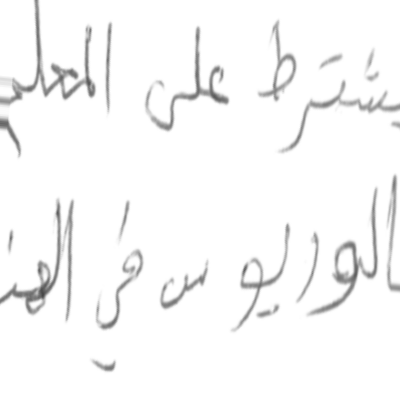 يشترط على المعلم
بكالوريوس في الهند